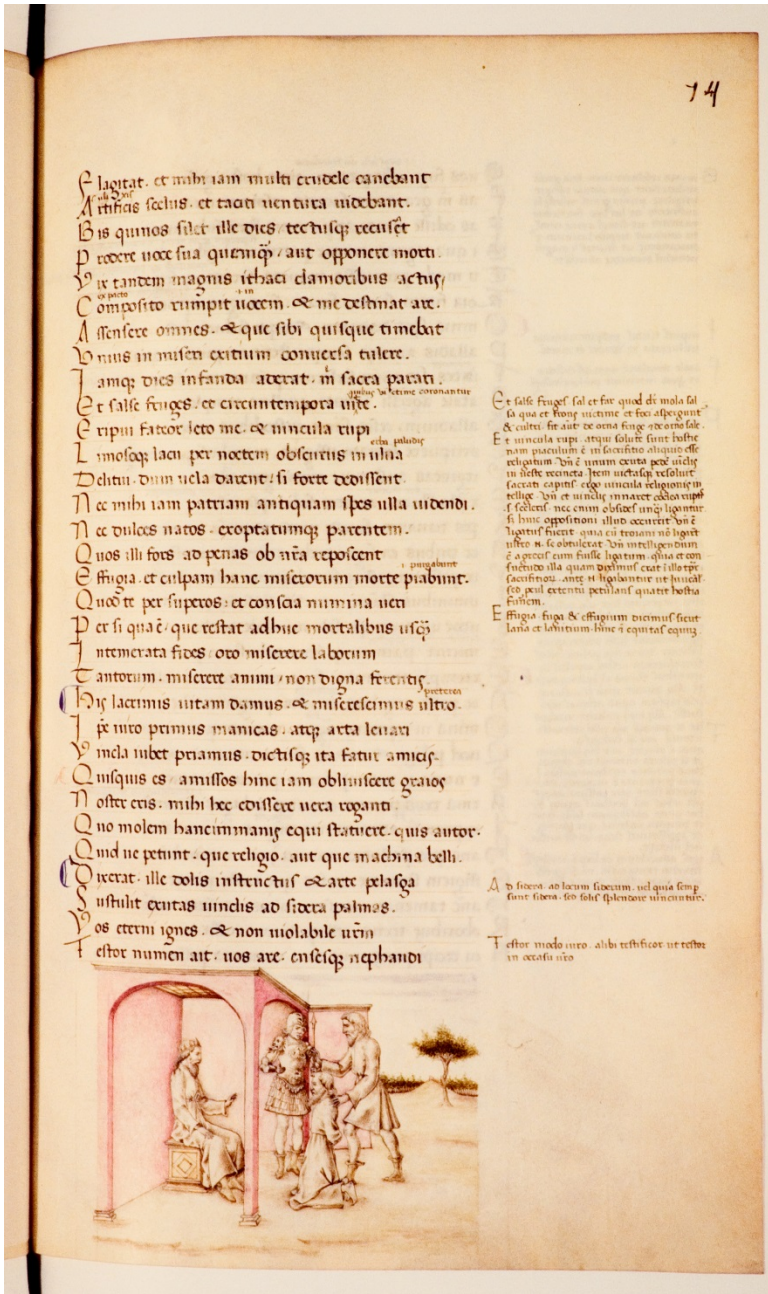 74
Flagitat. et mihi iam multi crudele canebant
Artificis scelus. et taciti uentura uidebant.
Bis quinos silet ille dies / tectusq; recusat
Prodere uoce sua quemq̃ / aut opponere morti.
Vix tandem magnis ithaci clamoribus actus /
ex pacto
Composito rumpit uocem. & me destinat are.
Assensere omnes. & que sibi quisque timebat
Vnius in miseri exitium conuersa tulere.
Iamq; dies infanda aderat. m̃ sacra parari.
quibus uictime coronantur
Et salse fruges. et circuntempora uitte.
Eripui fateor leto me. & uincula rupi
erba paludis
Limosoq; lacu per noctem obscurus in ulua
Delitui. dum uela darent. si forte dedissent.
Nec mihi iam patriam antiquam spes ulla uidendi.
Nec dulces natos. exoptatumq; parentem.
Quos illi fors ad penas ob nr̃a reposcent
i purgabunt
Effugia. et culpam hanc miserorum morte piabunt.
Quod te per superos. et conscia numina ueri
Per si qua ẽ. que restat adhuc mortalibus usq̃
Intemerata fides. oro miserere laborum
Tantorum. miserere animi / non digna ferentis
preterea
His lacrimis uitam damus. & miserescimus ultro.
Ipe uiro primus manicas. atq; arta leuari
Vincla iubet priamus. dictisq; ita fatur amicis.
Quisquis es amissos hinc iam obliuiscere graios
Noster eris. mihi hec edissere uera roganti
Quo molem hancimmanis equi statuere. quis autor.
Quid ue petunt. que religio. aut que machina belli.
Dixerat. ille dolis instructus & arte pelasga
Sustulit exutas uinclis ad sidera palmas.
Vos eterni ignes. & non uiolabile ur̃m
Testor numen ait. uos are. ensesq; nephandi
Et salse fruges. sal et far quod dr̃ mola sal
sa qua et frons uictime et foci aspergunt
& cultri. fit aut̃ de orna fruge & de orno sale.
Et uincula rupi. atqui solute sunt hostie
nam piaculum ẽ in sacrificio aliquid esse
religatum. Vñ ẽ unum exuta pedẽ uiclis
in ueste recincta. Item uictasq; resoluit
sacrati capitis. ergo uincula religionis in
tellige. Vñ et uinclis innaret
s sceleris. nec enim obsides unq̃ ligantur
si hinc oppositioni illud occurrit Vñ ẽ
ligatus fuerit. quia cũ troiani nõ ligarint
ultro n. se obtulerat. Vñ intelligendum
ẽ a grecis eum fuisse ligatum. quia et con
suetudo illa quam diximus erat ĩ illo tp̃r
sacrifitior. ante n ligabantur ut iuueal̃
sed peul extentũ petulans quatit hostia
funem.
Effugia. fuga & effugium dicimus sicut
lana et lanitium. hinc ĩ equitas equitiũ
Ad sidera. ad locum siderum. uel quia semp
sunt sidera. sed solis splendore uincuntur.
Testor modo iuro. alibi testificor ut testor
in occasu ur̃o